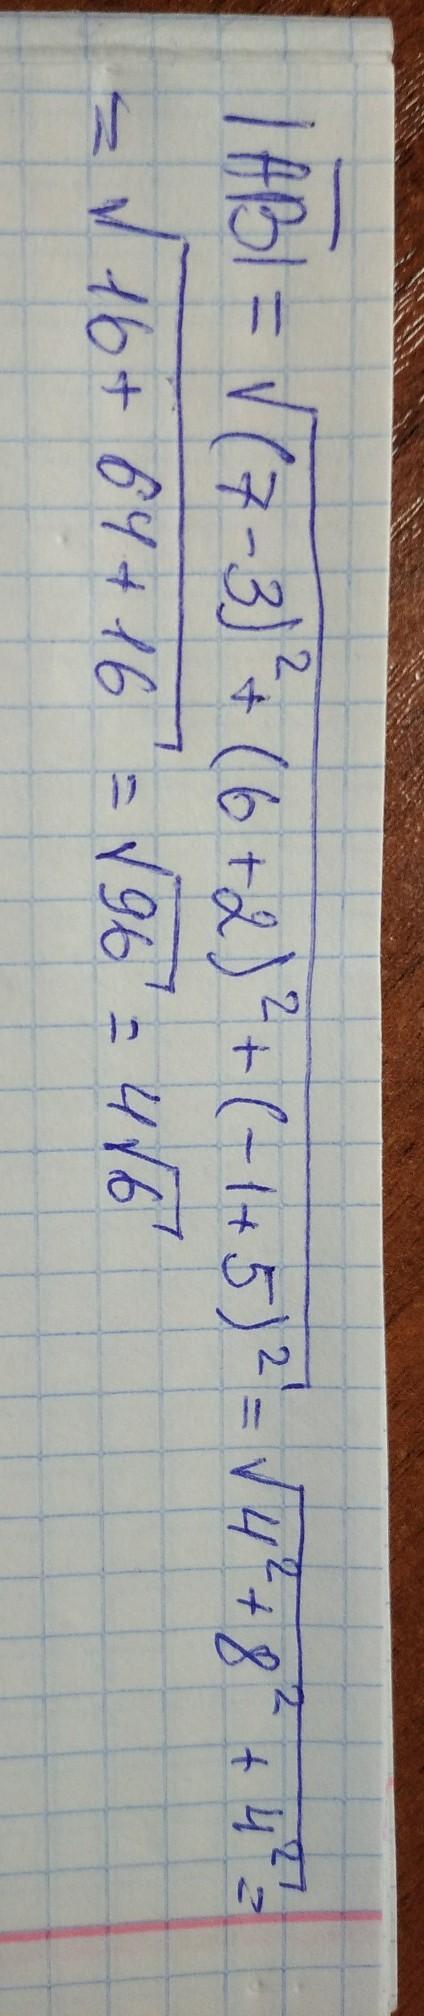 |A̅B̅| = √(7-3)² + (6+2)² + (-1+5)² = √4² + 8² + 4² =
= √16 + 64 + 16 = √96 = 4√6